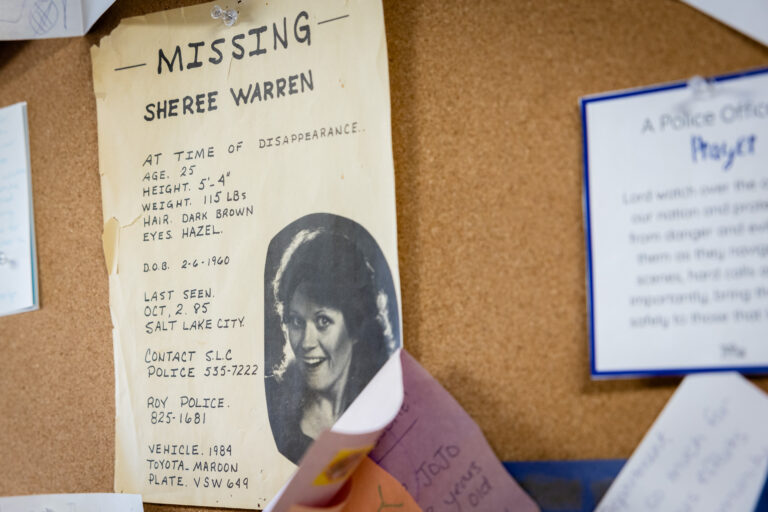 — MISSING —
SHEREE WARREN
AT TIME OF DISAPPEARANCE..
AGE. 25
HEIGHT. 5'-4"
WEIGHT. 115 LBS
HAIR. DARK BROWN
EYES. HAZEL.
D.O.B. 2-6-1960
LAST SEEN.
OCT, 2. 85
SALT LAKE CITY.
CONTACT S.L.C
POLICE 535-7222
ROY POLICE.
825-1681
VEHICLE. 1984
TOYOTA-MAROON
PLATE. VSW 649
A Police Offic
Prayer
Lord watch over the
our nation and prote
from danger and evi
them as they navig
scenes, hard calls a
importantly, bring th
safely to those that
JOJO
years
old
so much for